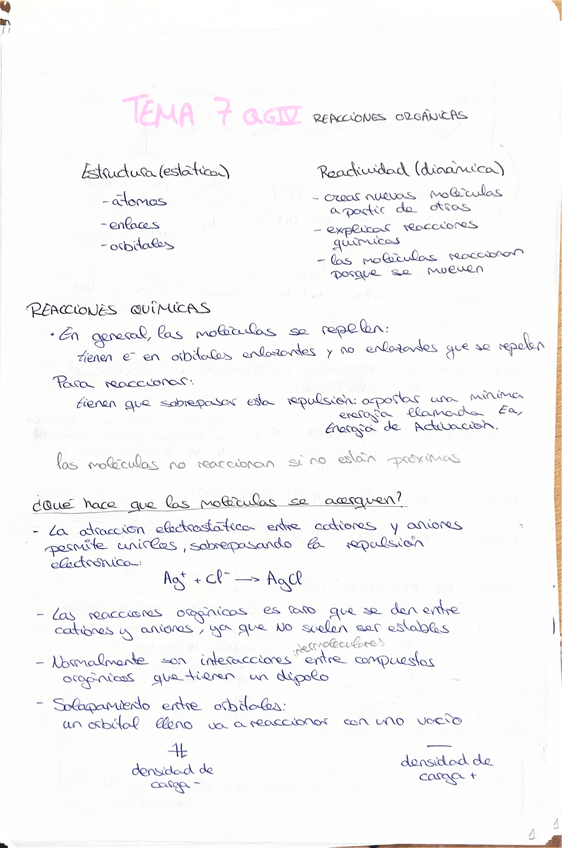 TEMA 7 QGIV REACCIONES ORGÁNICAS
Estructura (estática)
- átomos
- enlaces
- orbitales
Reactividad (dinámica)
- crear nuevas moléculas
a partir de otras
- explicar reacciones
químicas
- las moléculas reaccionan
porque se mueven
REACCIONES QUÍMICAS
• En general, las moléculas se repelen:
tienen e⁻ en orbitales enlazantes y no enlazantes que se repelen
Para reaccionar:
tienen que sobrepasar esta repulsión: aportar una mínima
energía llamada Ea,
Energía de Activación.
las moléculas no reaccionan si no están próximas
¿Qué hace que las moléculas se acerquen?
- La atracción electrostática entre cationes y aniones
permite unirlos, sobrepasando la repulsión
electrónica:
Ag⁺ + Cl⁻ → AgCl
- Las reacciones orgánicas es raro que se den entre
cationes y aniones, ya que NO suelen ser estables
- Normalmente son interacciones intermoleculares entre compuestos
orgánicos que tienen un dipolo
- Solapamiento entre orbitales:
un orbital lleno va a reaccionar con uno vacío
densidad de
carga -
densidad de
carga +
1